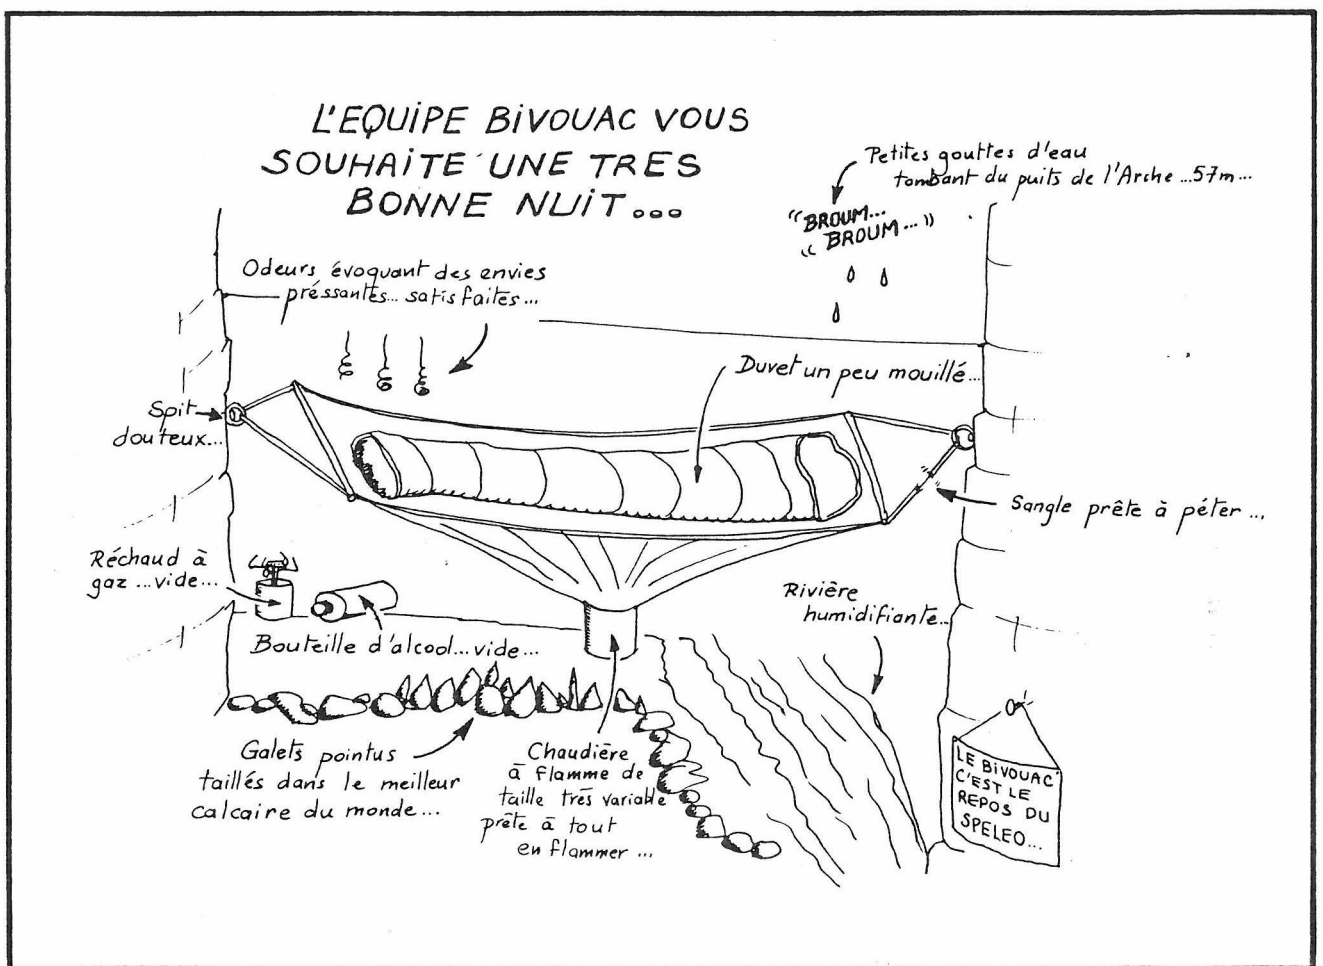 L'EQUIPE BIVOUAC VOUS
SOUHAITE UNE TRES
BONNE NUIT...
Petites gouttes d'eau
tombant du puits de l'Arche ...57m...
"BROUM...
"BROUM..."
Odeurs évoquant des envies
préssantes... satisfaites...
Duvet un peu mouillé...
Spit
douteux...
Sangle prête à péter ...
Réchaud à
gaz ...vide...
Bouteille d'alcool...vide...
Rivière
humidifiante...
Galets pointus
taillés dans le meilleur
calcaire du monde...
Chaudière
à flamme de
taille très variable
prête à tout
enflammer ...
LE BIVOUAC
C'EST LE
REPOS DU
SPELEO...